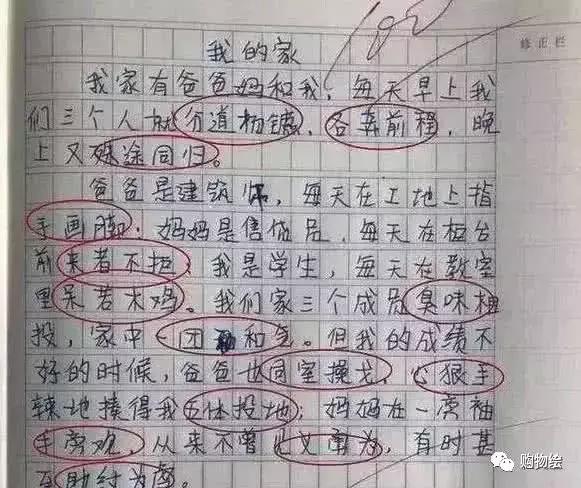 100
修正栏
我的家
我家有爸爸妈和我,每天早上我
们三个人就分道杨镳,各奔前程,晚
上又殊途同归。
爸爸是建筑师,每天在工地上指
手画脚;妈妈是售货员,每天在柜台
前来者不拒;我是学生,每天在教室
里呆若木鸡。我们家三个成员臭味相
投,家中一团和气。但我的成绩不
好的时候,爸爸也同室操戈,心狠手
辣地揍得我五体投地;妈妈在一旁袖
手旁观,从来不曾见义勇为,有时甚
至助纣为虐。
购物绘